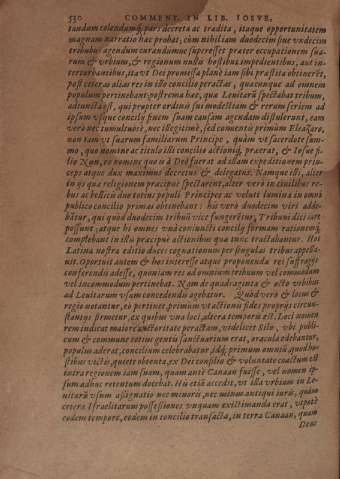 530 COMMENT. IN LIB. IOSVE,
tandum colendumq́; pars decreta ac tradita, itaque opportunitatem
magnam narratio hac probat, cum nihil iam duodecim siue vndecim
tribubus agendum curandumue superesset prater occupationem sua-
rum & vrbium, & regionum nullis hostibus impedientibus, aut in-
terturbantibus, ita vt Dei promissa planè iam sibi prastita obtinerēt,
post ceteras alias res in isto concilio peractas, quacunque ad omnem
populum pertinebant postrema hac, qua Leuitarū spectabat tribum,
adiuncta est, qui propter ordinis sui modestiam & rerum seriem ad
ipsum vsque concilij finem suam causam agendam distulerunt, eam
verò nec tumultuosè, nec illegitimè, sed conuentis primùm Eleazaro,
non tam vt suarum familiarum Principe, quàm vt sacerdote sum-
mo, quo nomine ac titulo illi concilio actioniq́; praerat, & Iosue fi-
lio Nun, eo nomine quo is à Deo fuerat ad illam expeditionem prin-
ceps atque dux maximus decretus & delegatus. Namque isti, alter
in ijs qua religionem pracipuè spectarent, alter verò in ciuilibus re-
bus ac bellicis duo totius populi Principes ac veluti lumina in omni
publico concilio primas obtinebant: his verò duodecim viri adde-
bātur, qui quòd duodecim tribuū vice fungerētur, Tribuni dici iure
possunt, atque hi omnes vnà coniuncti concilij formam rationemq́;
complebant in illis pracipuè actionibus qua tunc tractabantur. Hos
Latina nostra editio duces cognationum per singulas tribus appella-
uit. Oportuit autem & hos interesse atque proponenda rei suffragijs
conferendis adesse, quoniam res ad omnium tribuum vel commodum
vel incommodum pertinebat. Nam de quadraginta & octo vrbibus
ad Leuitarum vsum concedendis agebatur. Quòd verò & locus &
regio notantur, eò pertinet, primùm vt actionis fides proprijs circun-
stantijs firmetur, ex quibus vna loci, altera temporis est. Loci nomen
rem indicat maiore auctoritate peractam, videlicet Silo, vbi publi-
cum & commune totius gentis sanctuarium erat, oracula edebantur,
populus aderat, concilium celebrabatur iddq́; primum omniū quod ho-
stibus victis, quiete obtenta, ex Dei consilio & voluntate coactum est
intra regionem iam suam, quam antè Canaan fuisse, vel nomen ip-
sum adhuc retentum docebat. His etiā accedit, vt illa vrbium in Le-
nitarū vsum assignatio nec minoris, nec minùs antiqui iuris, quàm
cetera Israelitarum possessiones vnquam existimanda erat, vtpote
eodem tempore, eodem in concilio transacta, in terra Canaan, quam
Deus